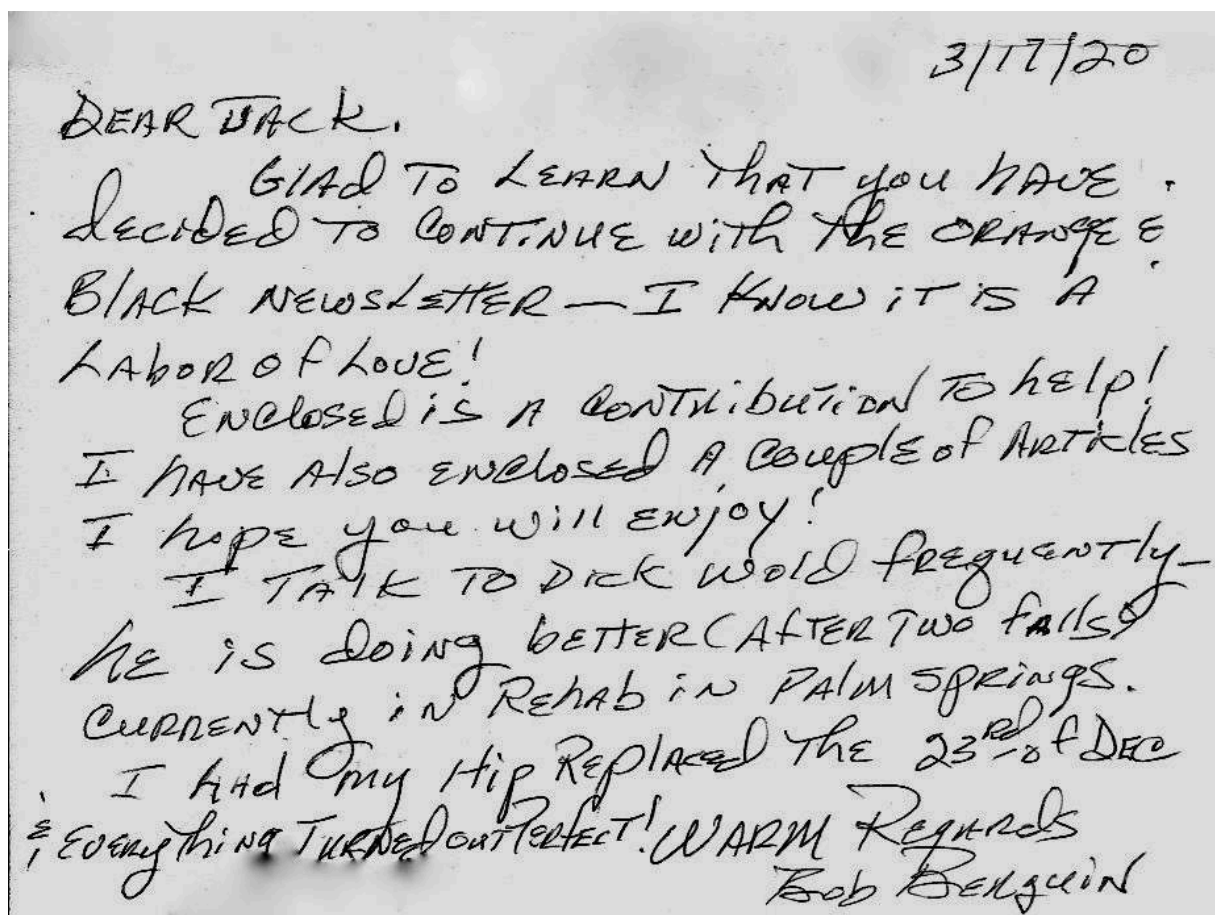 3/17/20
DEAR JACK.
GlAd TO LEARN ThAT you hAVE
decided TO CONTiNUE with ThE ORANgE &
BlACK NEWSLETTER — I KNOW iT iS A
LAbOR Of LOVE!
ENClOSEd iS A CONTRibuTiON TO hElp!
I hAVE AlSO ENClOSEd A COuplE of ARTiClES
I hopE you will ENjOy!
I TAlK TO DiCK WOld fREquENTly —
hE iS dOiNg bETTER (AfTER TWO fAllS)
CuRRENTly iN REhAb iN PAlM SpRiNgS.
I hAd my Hip REplACEd ThE 23RD of DEC
& EVERyThiNg TuRNEd OuT PERfECT! WARM REgARdS
BOb BERguiN